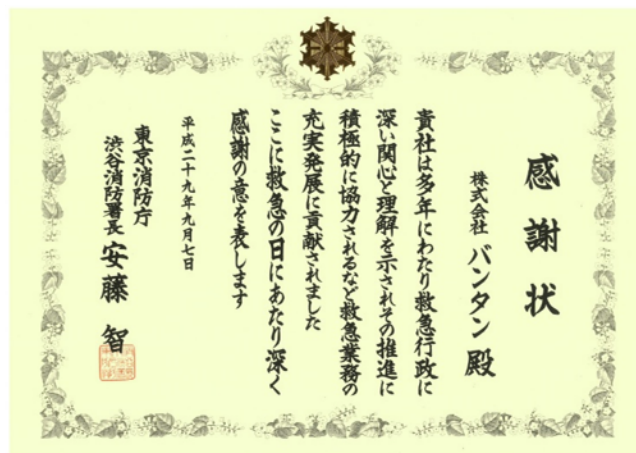 感謝状
株式会社 バンタン 殿
貴社は多年にわたり救急行政に
深い関心と理解を示されその推進に
積極的に協力されるなど救急業務の
充実発展に貢献されました
ここに救急の日にあたり深く
感謝の意を表します
平成二十九年九月七日
東京消防庁
渋谷消防署長 安藤 智